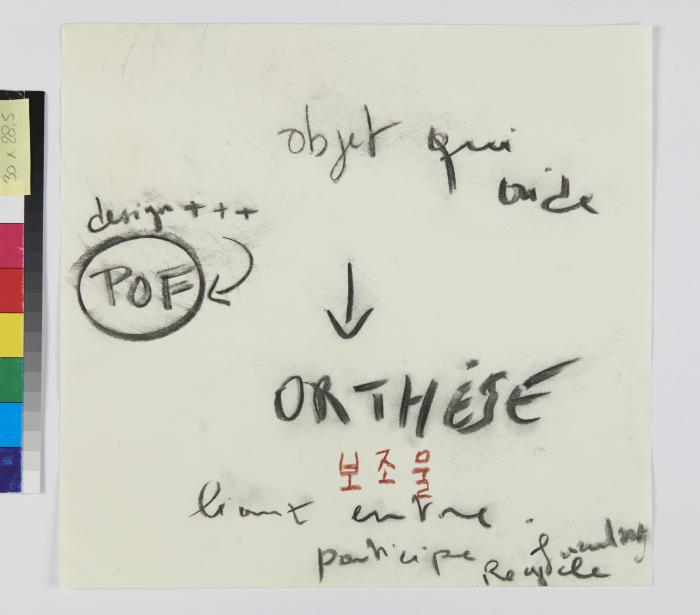 30 x 28,5
objet qui
design +++
POF
ORTHÈSE
보조물
entre
participe
Recycle